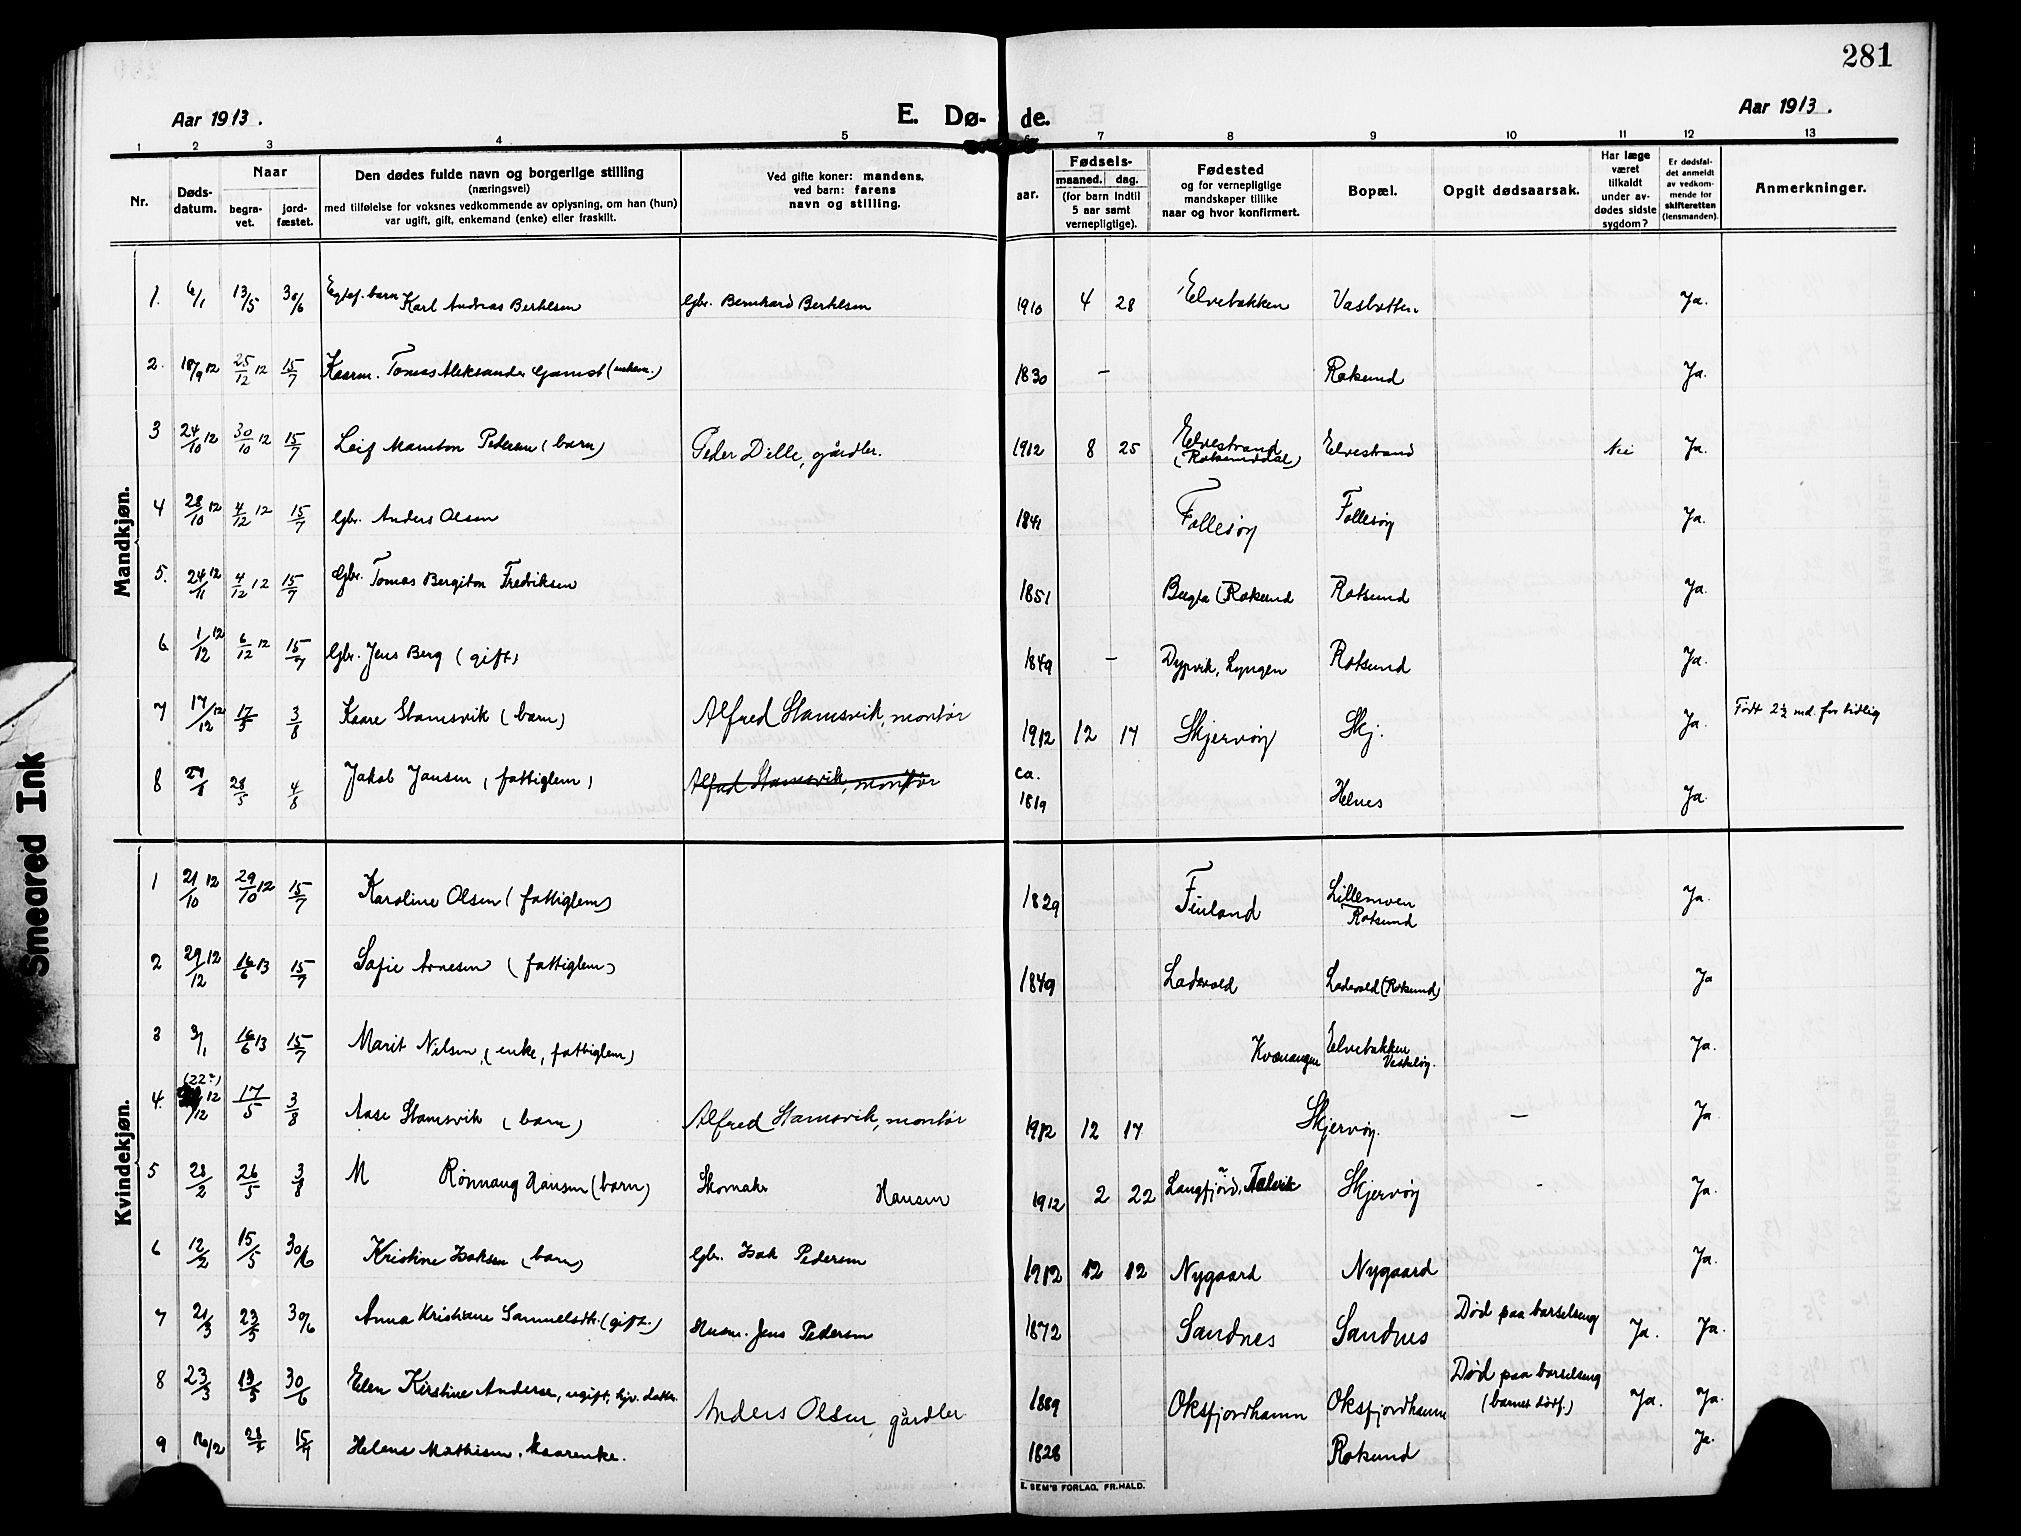 281
Aar 1913.
E. Dø- de.
Aar 1913.
1 2 3 4 5 6 7 8 9 10 11 12 13
Nr.
Døds-
datum.
Naar
begra-
vet.
jord-
fæstet.
Den dødes fulde navn og borgerlige stilling
(næringsvei)
med tilføielse for voksnes vedkommende av oplysning, om han (hun)
var ugift, gift, enkemand (enke) eller fraskilt.
Ved gifte koner: mandens,
ved barn: farens
navn og stilling.
aar.
Fødsels-
maaned. dag.
(for barn indtil
5 aar samt
vernepligtige).
Fødested
og for vernepligtige
mandskaper tillike
naar og hvor konfirmert.
Bopæl.
Opgit dødsaarsak.
Har læge
været
tilkaldt
under av-
dødes sidste
sygdom?
Er dødsfal-
det anmeldt
av vedkom-
mende for
skifteretten
(lensmanden).
Anmerkninger.
Mandkjøn.
1. 6/1 13/5 30/6 Egtef. barn Karl Andreas Berthlsen Gbr. Bernhard Berthlsen 1910 4 28 Elvebakken Vasbotten Ja.
2. 18/9 12 25/12 12 15/7 Kaarm. Tomas Aleksander Gamst (enkem.) 1830 — Rotsund Ja.
3 24/10 12 30/10 12 15/7 Leif Mamton Pedersen (barn) Peder Dille, gårdbr. 1912 8 25 Elvestrand (Rotsunddal) Elvestrand Nei Ja.
4 28/10 12 4/12 12 15/7 Gbr. Anders Olsen 1841 Follesøy Follesøy Ja.
5. 24/11 12 4/12 12 15/7 Gbr. Tomas Bergiton Fredriksen 1851 Bugta (Rotsund Rotsund Ja.
6 1/12 12 6/12 12 15/7 Gbr. Jens Berg (gift) 1849 — Dypvik, Lyngen Rotsund Ja.
7 17/12 12 17/5 3/8 Kaare Stamsvik (barn) Alfred Stamsvik, montør 1912 12 17 Skjervøy Skj. Ja. Født 2½ md. for tidlig
8 28/5 4/8 Jakob Jansen (fattiglem) Alfred Stamsvik, montør ca. 1819 Helnes Ja.
Kvindekjøn.
1 21/10 12 29/10 12 15/7 Karoline Olsen (fattiglem) 1829 Finland Lillemoen Rotsund Ja.
2 29/12 12 16/6 13 15/7 Sofie Arnesen (fattiglem) 1849 Ladevold Ladevold (Rotsund) Ja
3 9/1 16/6 13 15/7 Marit Nilsen, (enke, fattiglem) Kvænangen Elvebakken Ja.
4. (22?) 12/12 17/5 3/8 Aase Stamsvik (barn) Alfred Stamsvik, montør 1912 12 17 Skjervøy. — Ja.
5 28/2 26/5 3/8 M Rønnaug Hansen (barn) Skomaker Hansen 1912 2 22 Langfjord, Talvik Skjervøy - Ja.
6 12/2 15/5 30/6 Kristine Isaksen (barn) Gbr. Isak Pedersen 1912 12 12 Nygaard Nygaard Ja.
7 21/3 23/5 30/6 Anna Kristiane Samuelsdtr. (gift.) Husm. Jens Pedersen 1872 Sandnes Sandnes Død paa barselseng Ja. Ja.
8 23/3 13/5 30/6 Elen Kirstine Anderse, ugift, hjv. datter Anders Olsen, gårdbr 1889 Oksfjordhamn Oksfjordhamn Død paa barselseng (barnet dødf.) Ja. Ja.
9 16/2 15/7 Helene Mathisen, Kaarenke. 1828 Rotsund Ja.
E. SEM'S FORLAG, FR.HALD.
Smeared Ink